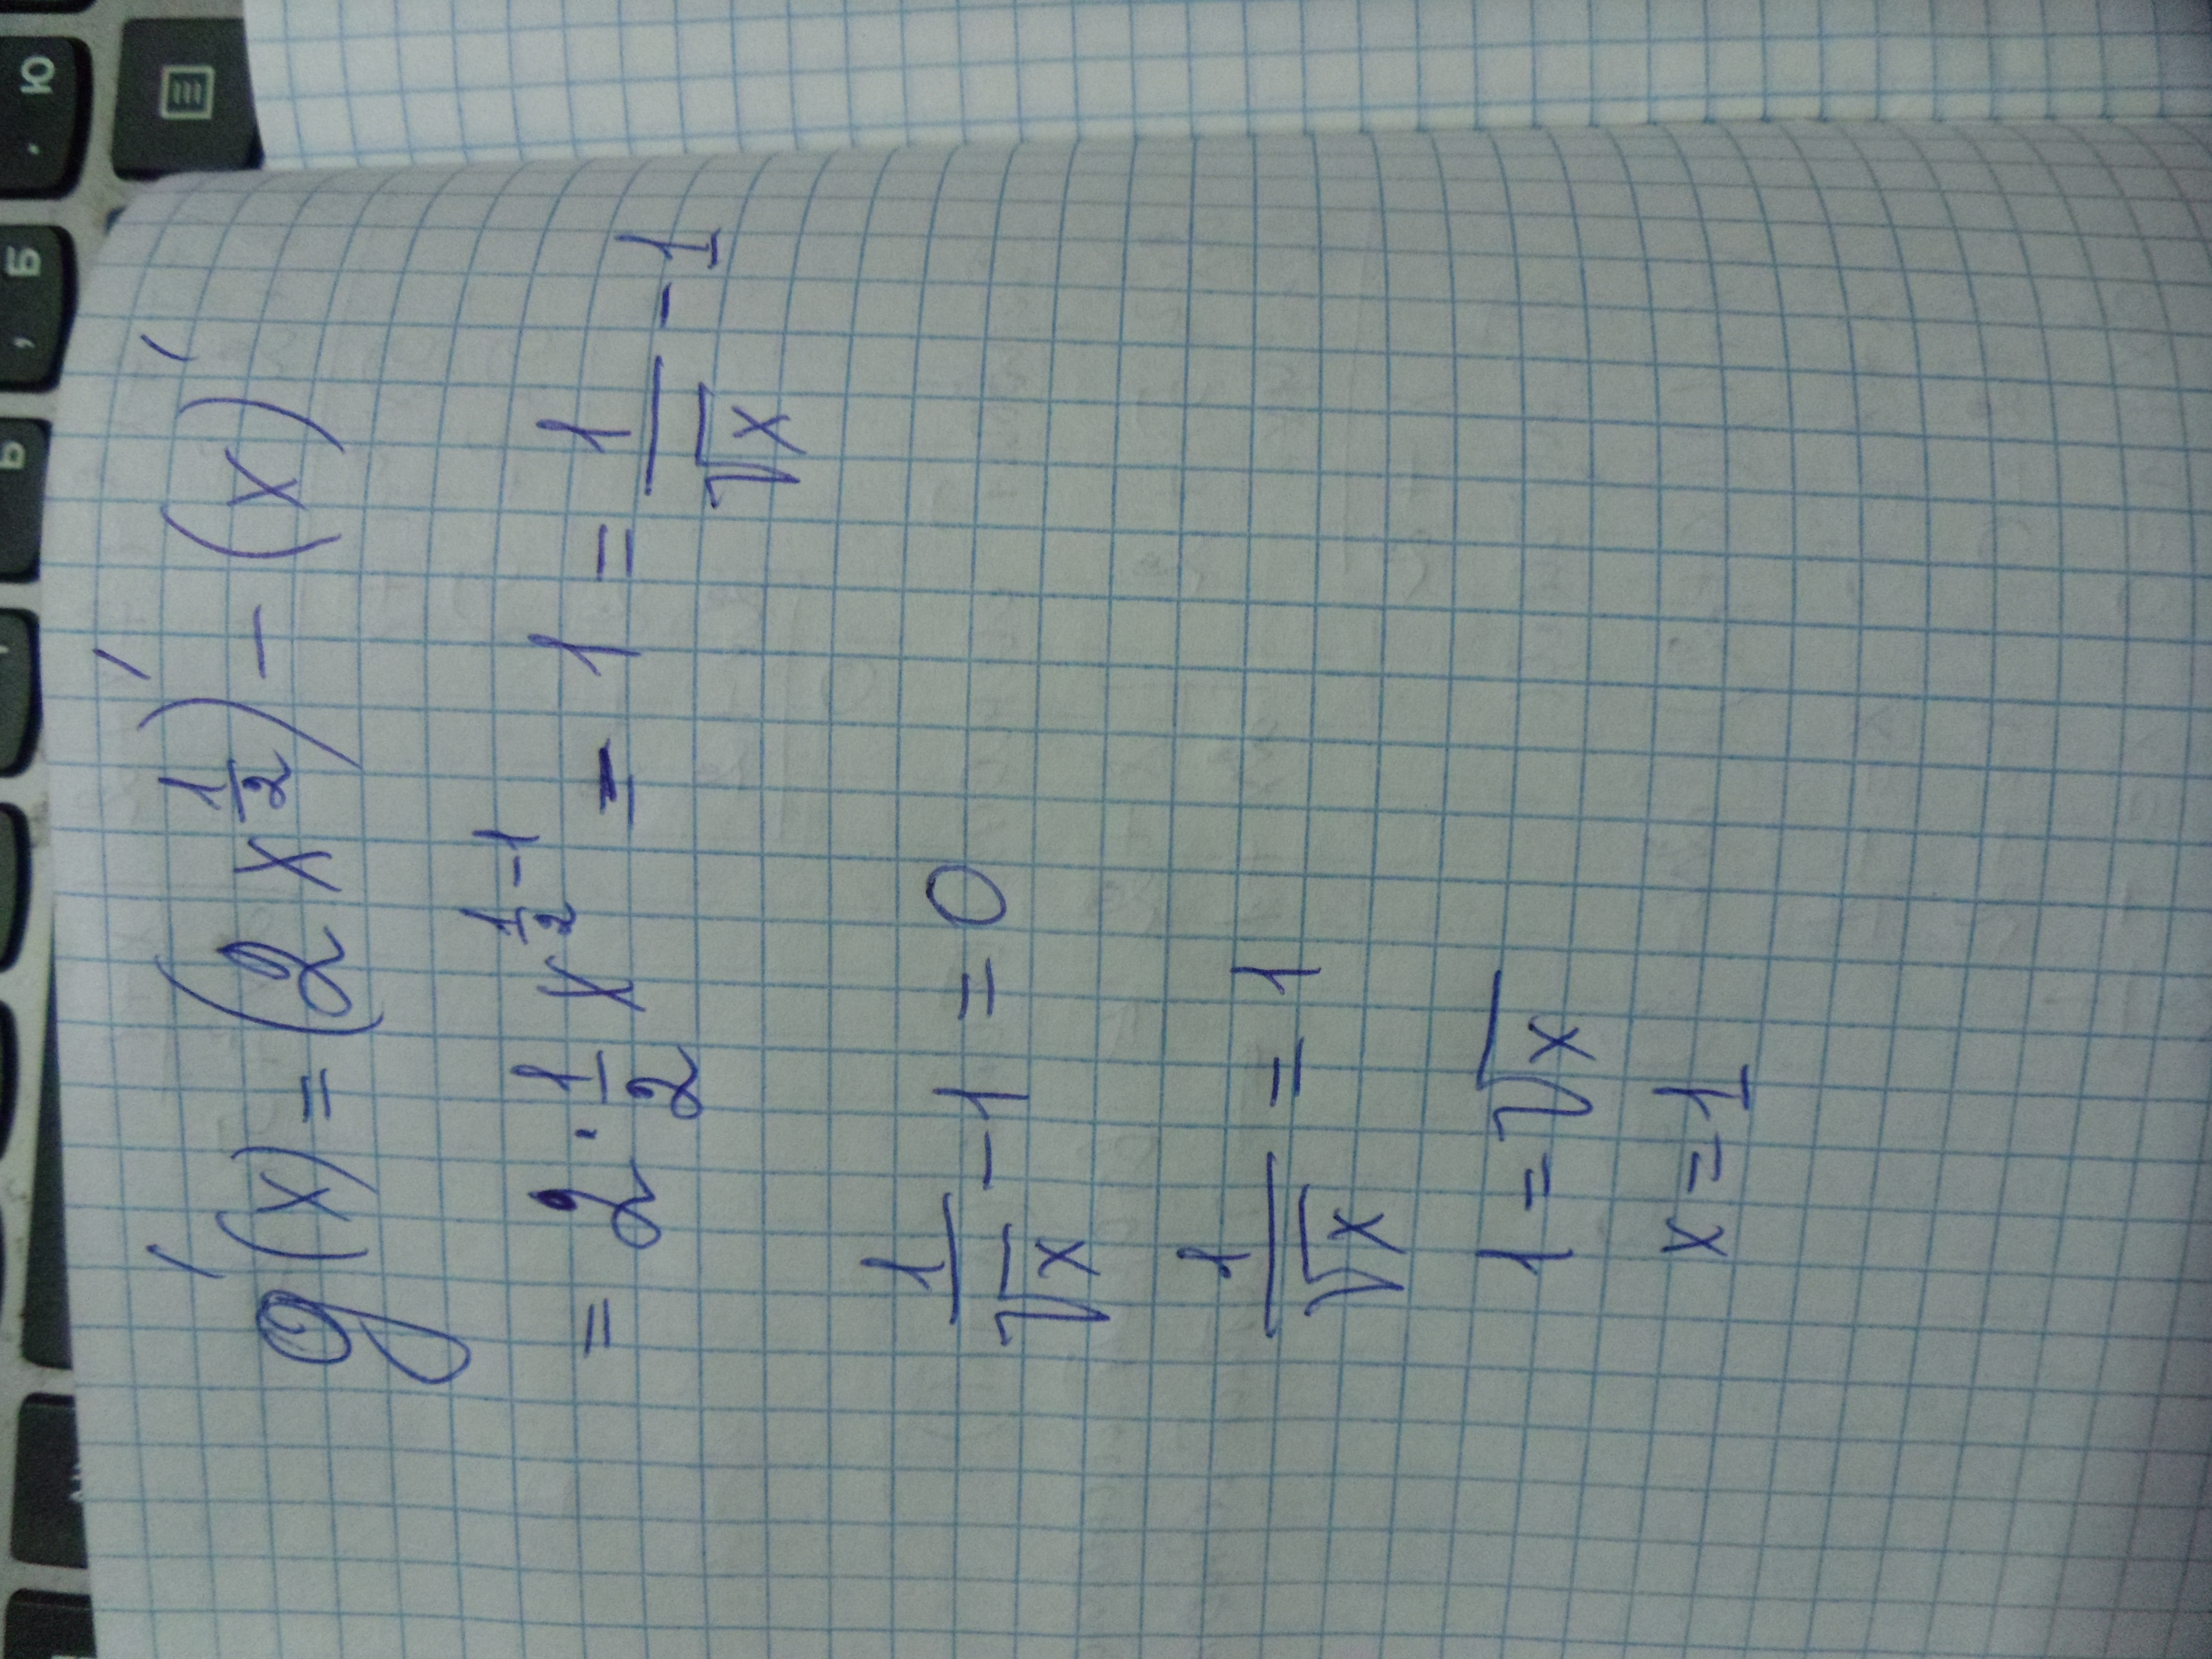 g'(x) = (2x^{\frac{1}{2}})' - (x)'
= 2 · \frac{1}{2} x^{\frac{1}{2}-1} - 1 = \frac{1}{\sqrt{x}} - 1
\frac{1}{\sqrt{x}} - 1 = 0
\frac{1}{\sqrt{x}} = 1
1 = \sqrt{x}
x = 1
Ю .
Б ,